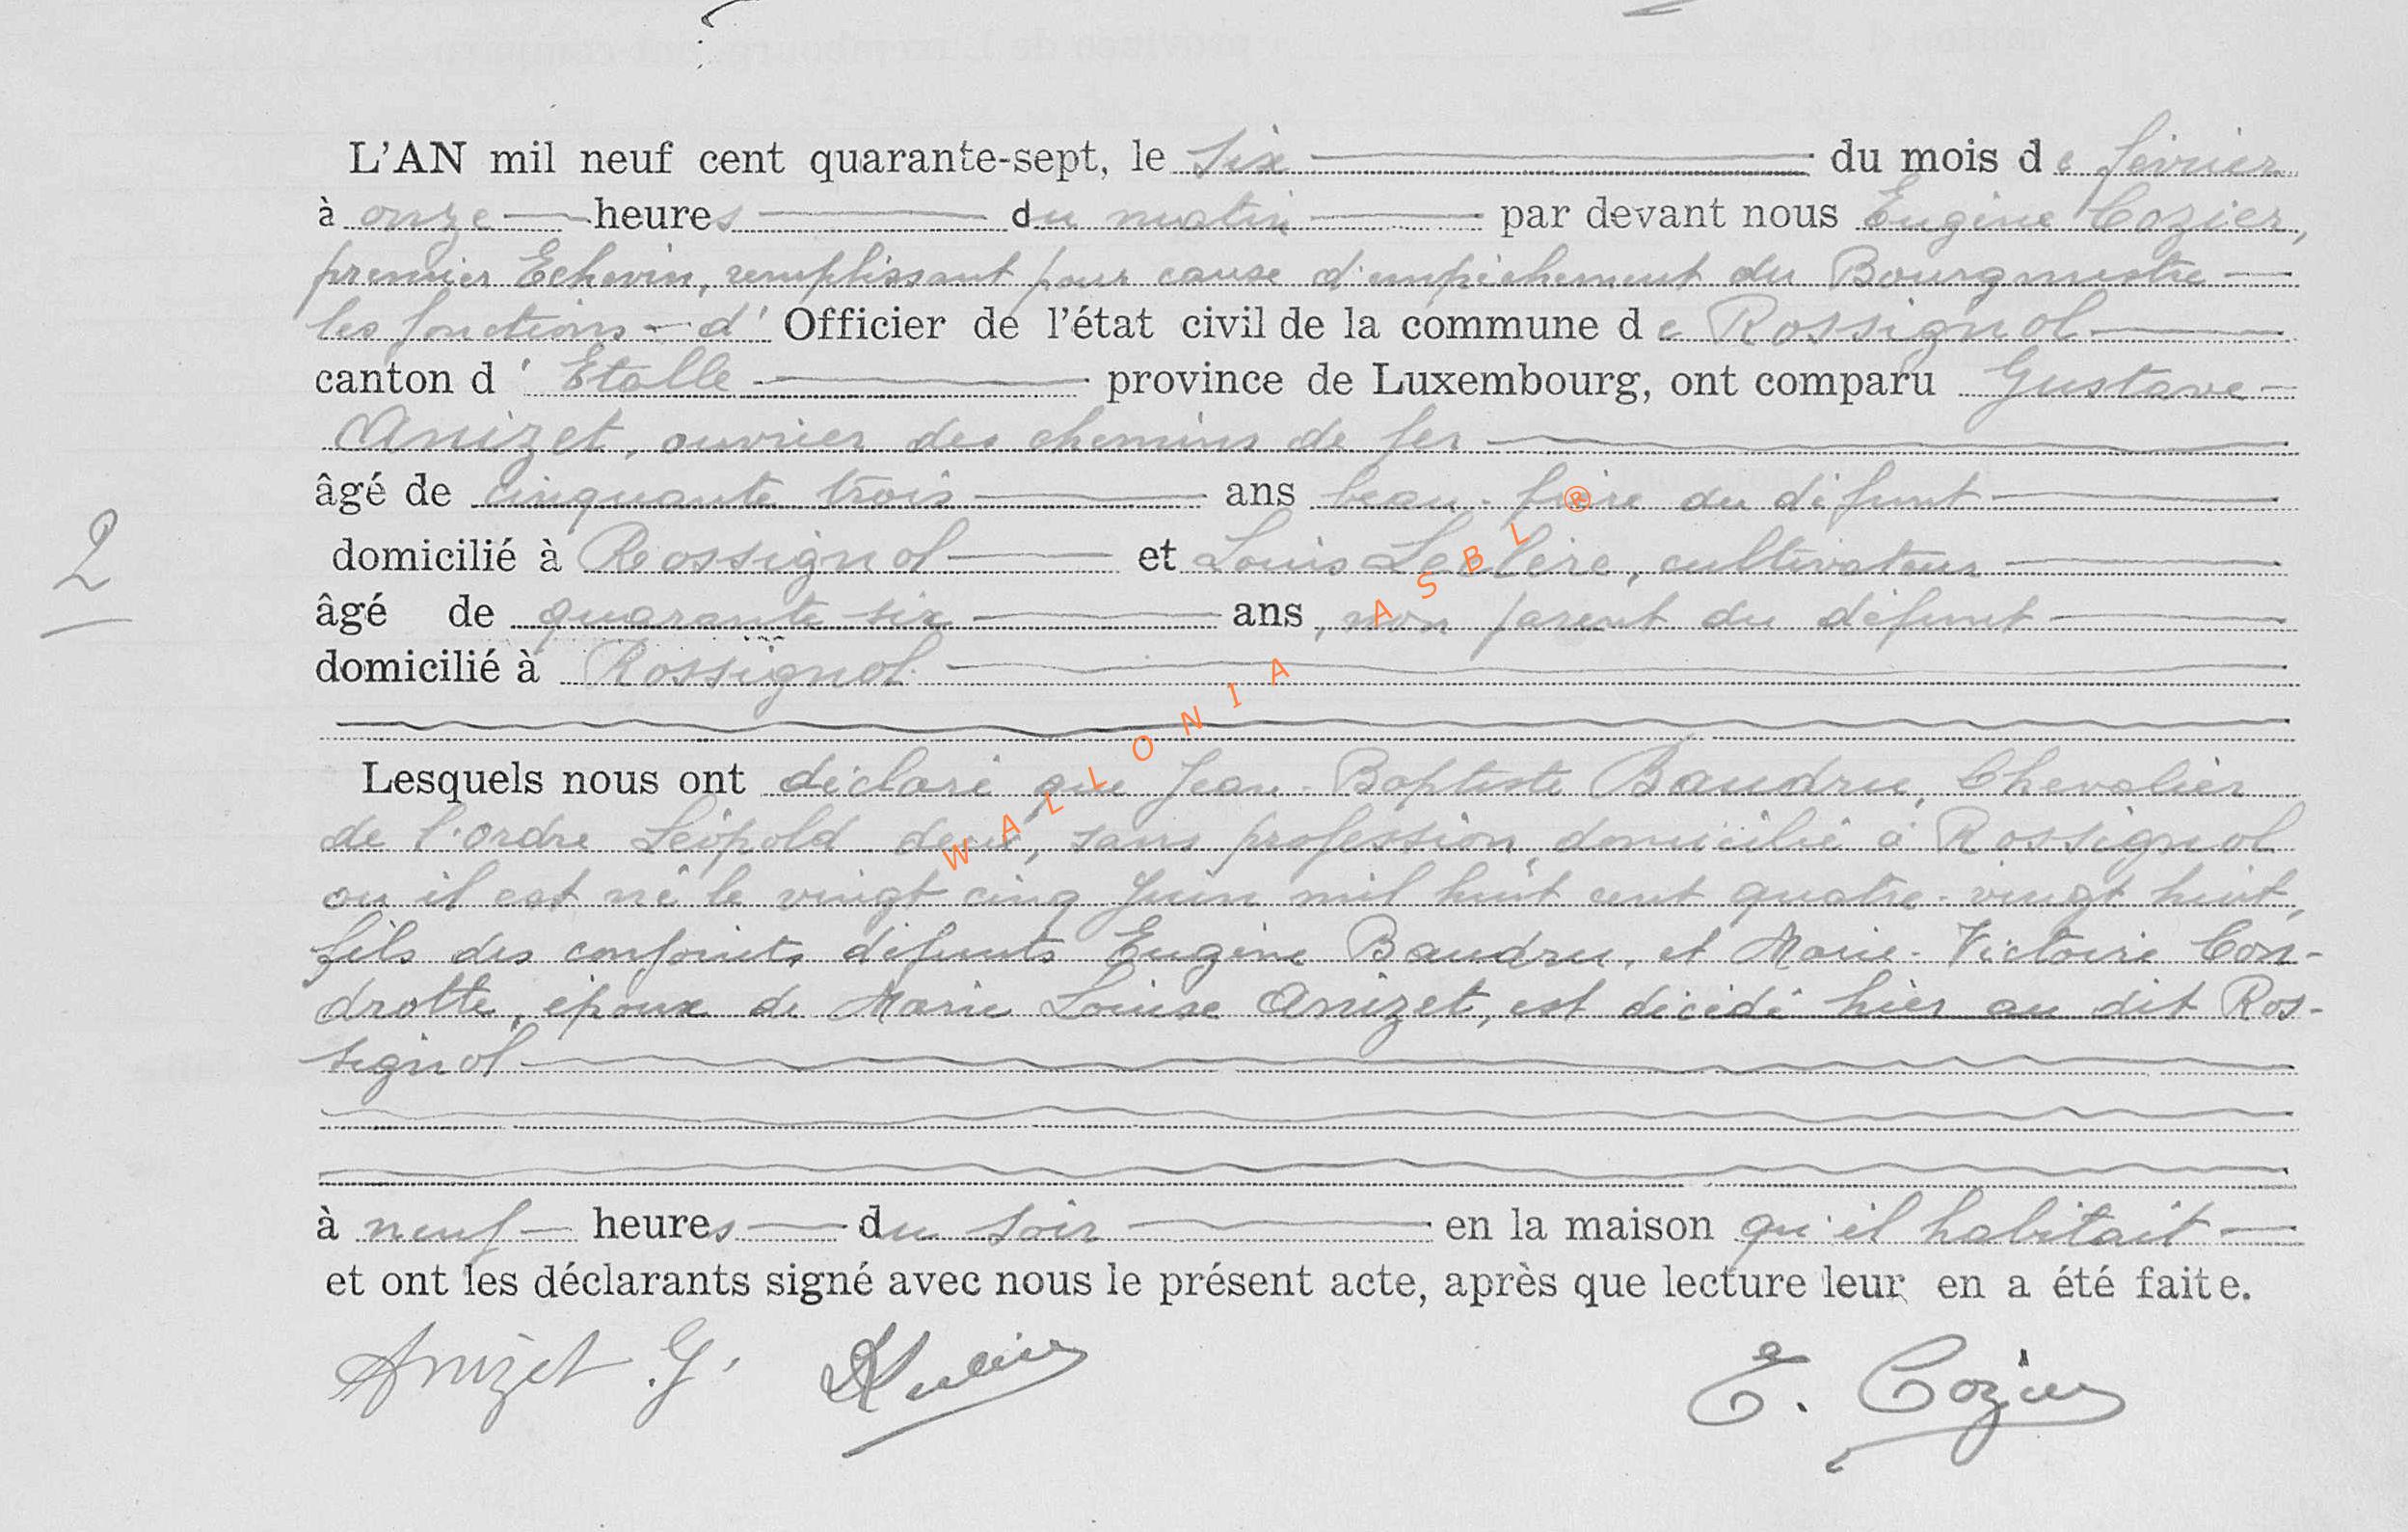 L'AN mil neuf cent quarante-sept, le six du mois de février
à onze heures du matin par devant nous Eugène Cozier,
premier Echevin, remplissant pour cause d'empêchement du Bourgmestre
les fonctions d' Officier de l'état civil de la commune de Rossignol
canton d' Etalle province de Luxembourg, ont comparu Gustave
Anizet, ouvrier des chemins de fer
âgé de cinquante trois ans beau-frère du défunt
2
domicilié à Rossignol et Louis Leclère, cultivateur
âgé de quarante six ans, non parent du défunt
domicilié à Rossignol
Lesquels nous ont déclaré que Jean-Baptiste Baudru, Chevalier
de l'ordre Léopold deux, sans profession, domicilié à Rossignol
ou il est né le vingt cinq Juin mil huit cent quatre-vingt huit,
fils des conjoints défunts Eugène Baudru, et Marie-Victoire Con-
drotte, époux de Marie Louise Anizet, est décédé hier au dit Ros-
signol
à neuf heures du soir en la maison qu'il habitait
et ont les déclarants signé avec nous le présent acte, après que lecture leur en a été faite.
Anizet G. E. Cozier
WALLONIA ASBL ®